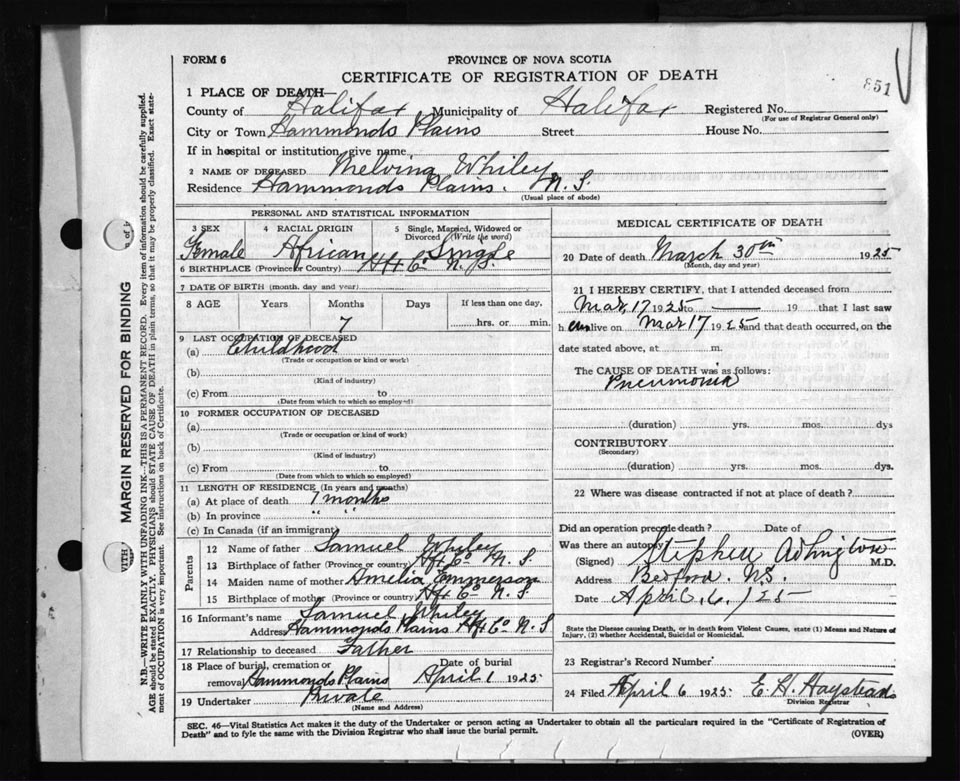 FORM 6
PROVINCE OF NOVA SCOTIA
CERTIFICATE OF REGISTRATION OF DEATH
851
1 PLACE OF DEATH—
County of Halifax Municipality of Halifax Registered No.
(For use of Registrar General only)
City or Town Hammonds Plains Street House No.
If in hospital or institution, give name
2 NAME OF DECEASED Melvina Whiley
Residence Hammonds Plains. N.S.
(Usual place of abode)
PERSONAL AND STATISTICAL INFORMATION
3 SEX 4 RACIAL ORIGIN 5 Single, Married, Widowed or Divorced (Write the word)
Female African Single
6 BIRTHPLACE (Province or Country) Hfx Co N.S.
7 DATE OF BIRTH (month, day and year)
8 AGE Years Months Days If less than one day,
7 hrs. or min.
9 LAST OCCUPATION OF DECEASED
(a) Childhood
(Trade or occupation or kind or work)
(b)
(Kind of industry)
(c) From to
(Date from which to which so employed)
10 FORMER OCCUPATION OF DECEASED
(a)
(Trade or occupation or kind of work)
(b)
(Kind of industry)
(c) From to
(Date from which to which so employed)
11 LENGTH OF RESIDENCE (In years and months)
(a) At place of death 7 months
(b) In province " "
(c) In Canada (if an immigrant)
Parents
12 Name of father Samuel Whiley
13 Birthplace of father (Province or country) Hfx Co N.S.
14 Maiden name of mother Amelia Emmerson
15 Birthplace of mother (Province or country) Hfx Co N.S.
16 Informant's name Samuel Whiley
Address Hammonds Plains Hfx Co N.S
17 Relationship to deceased Father
18 Place of burial, cremation or removal Hammonds Plains Date of burial April 1 1925
19 Undertaker Private
(Name and Address)
MEDICAL CERTIFICATE OF DEATH
20 Date of death March 30th 1925
(Month, day and year)
21 I HEREBY CERTIFY, that I attended deceased from
Mar, 17 1925 to — 19 that I last saw
h er alive on Mar 17 1925 and that death occurred, on the
date stated above, at m.
The CAUSE OF DEATH was as follows:
Pneumonia
(duration) yrs. mos. dys
CONTRIBUTORY
(Secondary)
(duration) yrs. mos. dys.
22 Where was disease contracted if not at place of death?
Did an operation precede death? Date of
Was there an autopsy
(Signed) Stephen Adlington M.D.
Address Bedford. N.S.
Date April, 6, 1925
State the Disease causing Death, or in death from Violent Causes, state (1) Means and Nature of
Injury, (2) whether Accidental, Suicidal or Homicidal.
23 Registrar's Record Number
24 Filed April 6 1925. E. H. Haystead
Division Registrar
SEC. 46—Vital Statistics Act makes it the duty of the Undertaker or person acting as Undertaker to obtain all the particulars required in the "Certificate of Registration of
Death" and to fyle the same with the Division Registrar who shall issue the burial permit.
(OVER)
MARGIN RESERVED FOR BINDING
N.B.—WRITE PLAINLY WITH UNFADING INK—THIS IS A PERMANENT RECORD. Every item of information should be carefully supplied.
AGE should be stated EXACTLY. PHYSICIANS should STATE CAUSE OF DEATH in plain terms, so that it may be properly classified. Exact state-
ment of OCCUPATION is very important. See instructions on back of Certificate.